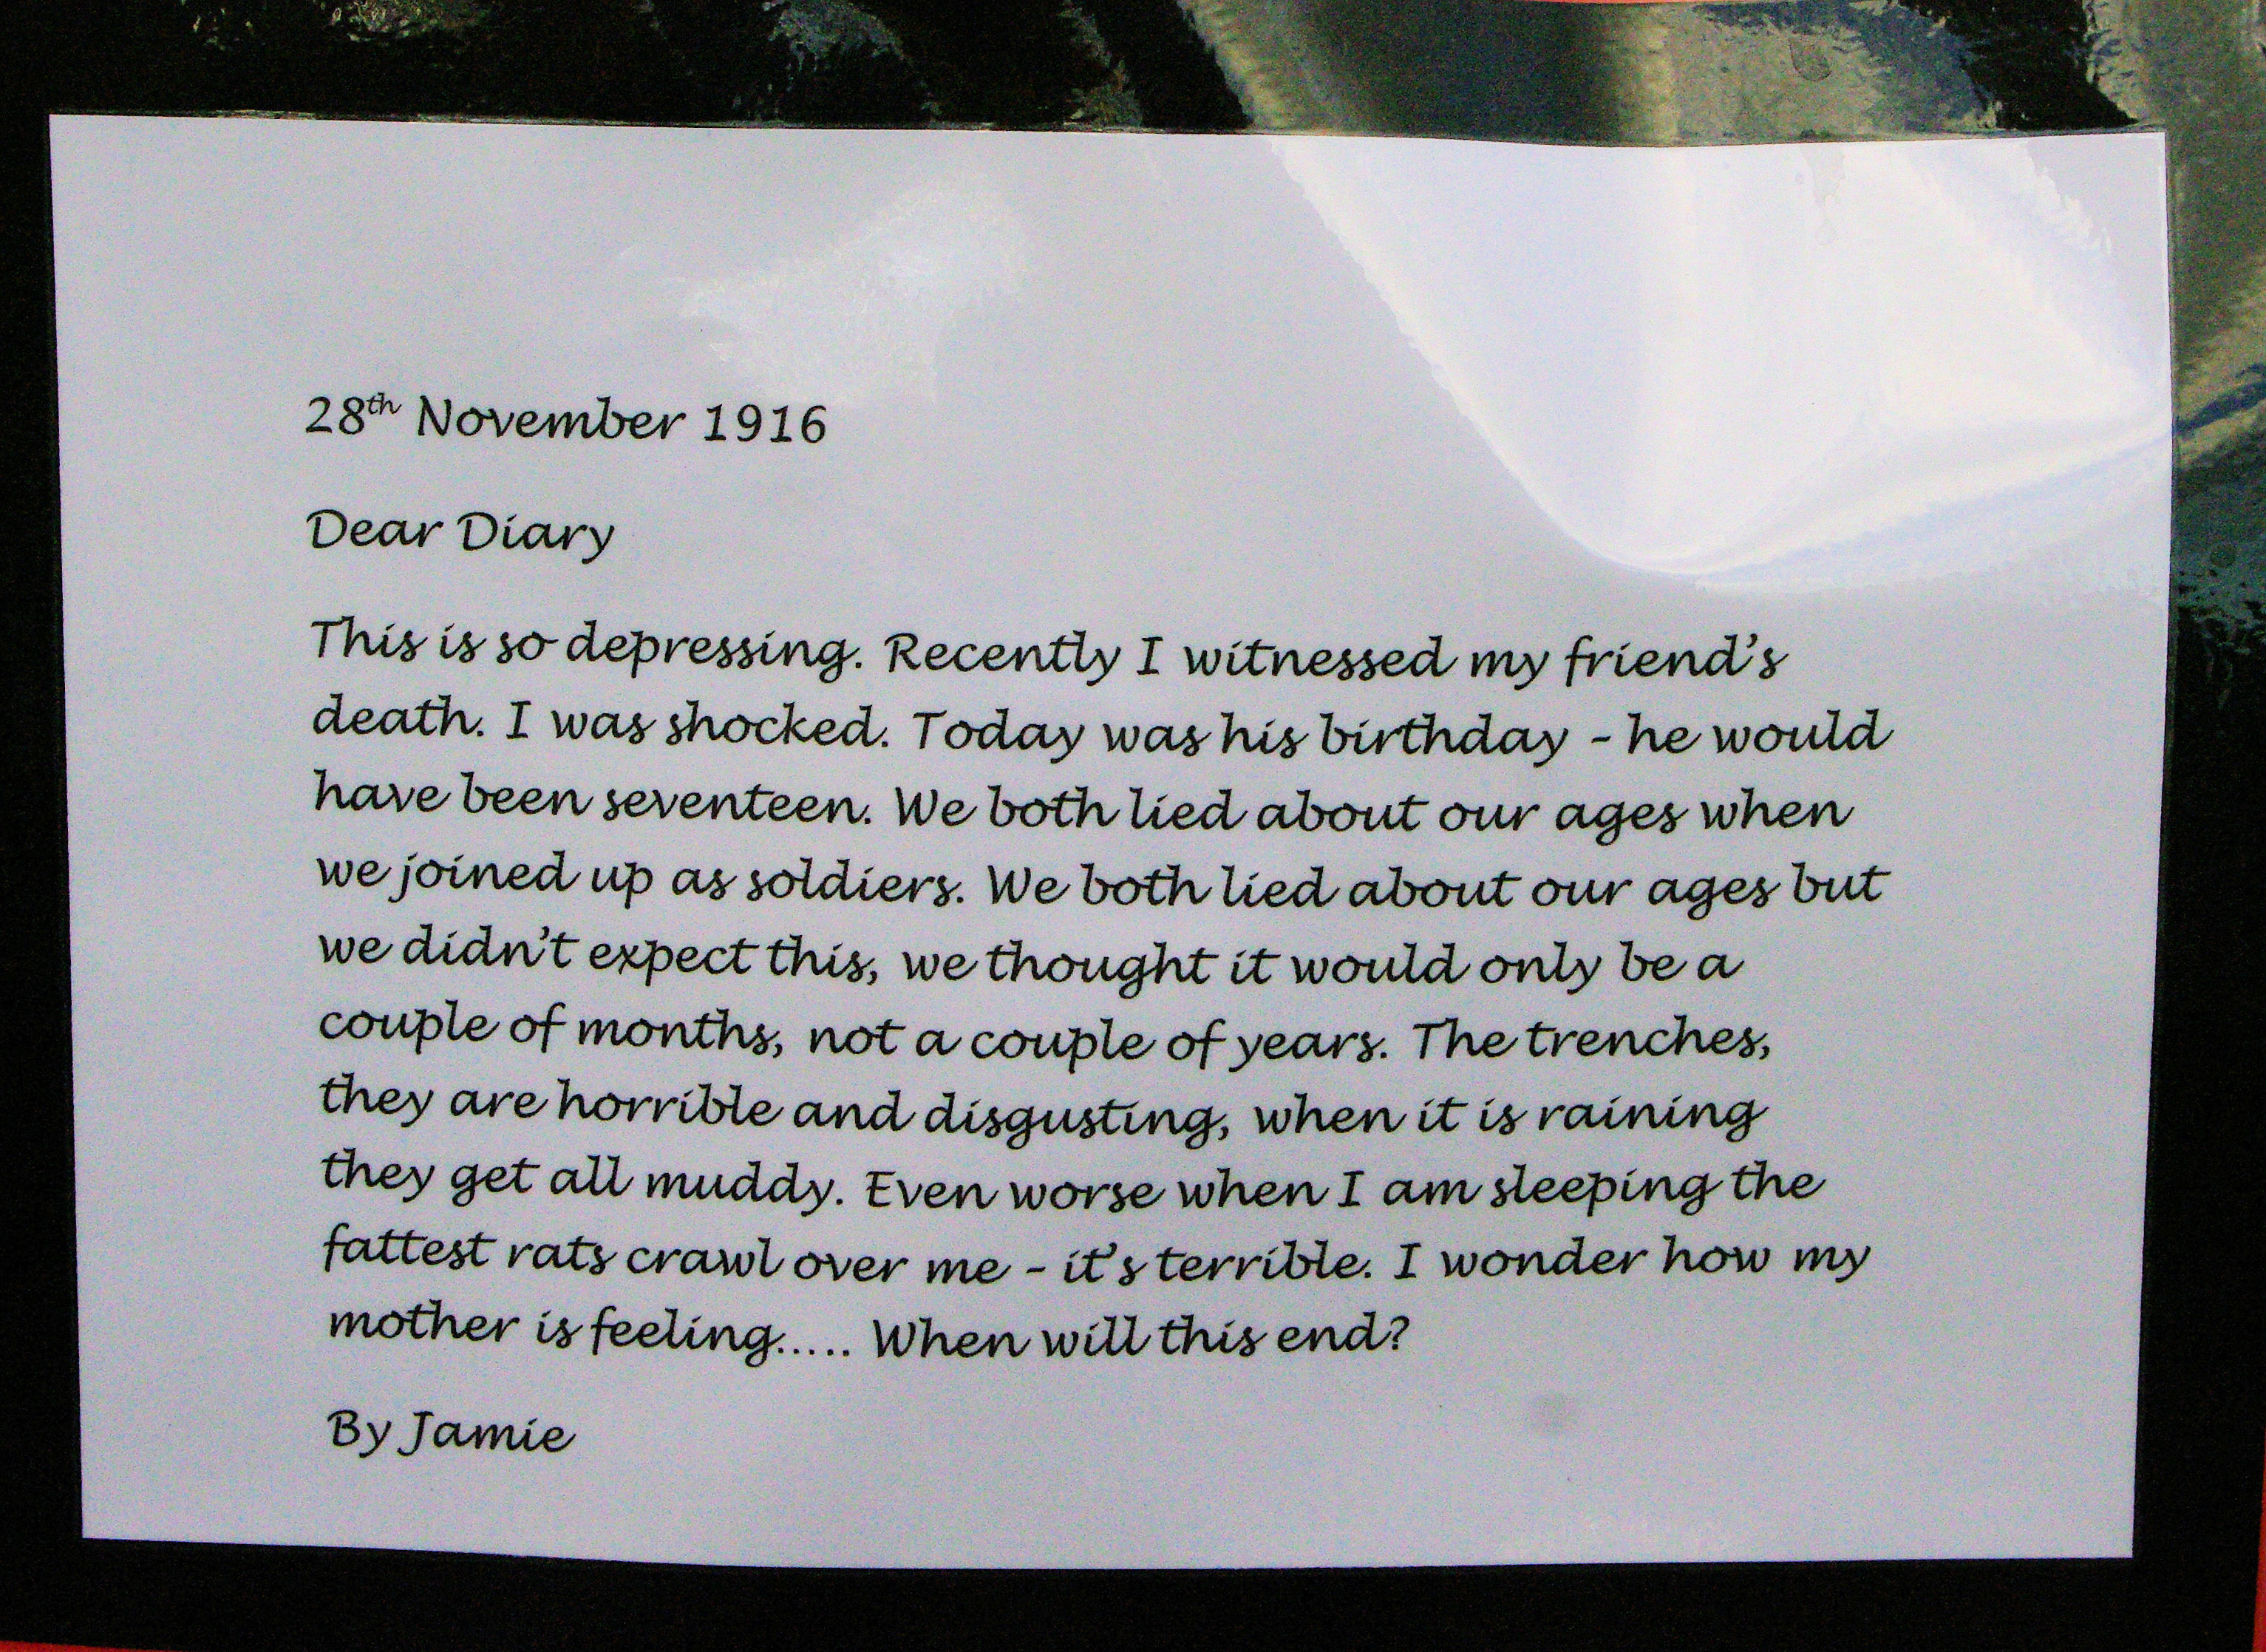 28th November 1916
Dear Diary
This is so depressing. Recently I witnessed my friend's
death. I was shocked. Today was his birthday - he would
have been seventeen. We both lied about our ages when
we joined up as soldiers. We both lied about our ages but
we didn't expect this, we thought it would only be a
couple of months, not a couple of years. The trenches,
they are horrible and disgusting, when it is raining
they get all muddy. Even worse when I am sleeping the
fattest rats crawl over me - it's terrible. I wonder how my
mother is feeling..... When will this end?
By Jamie